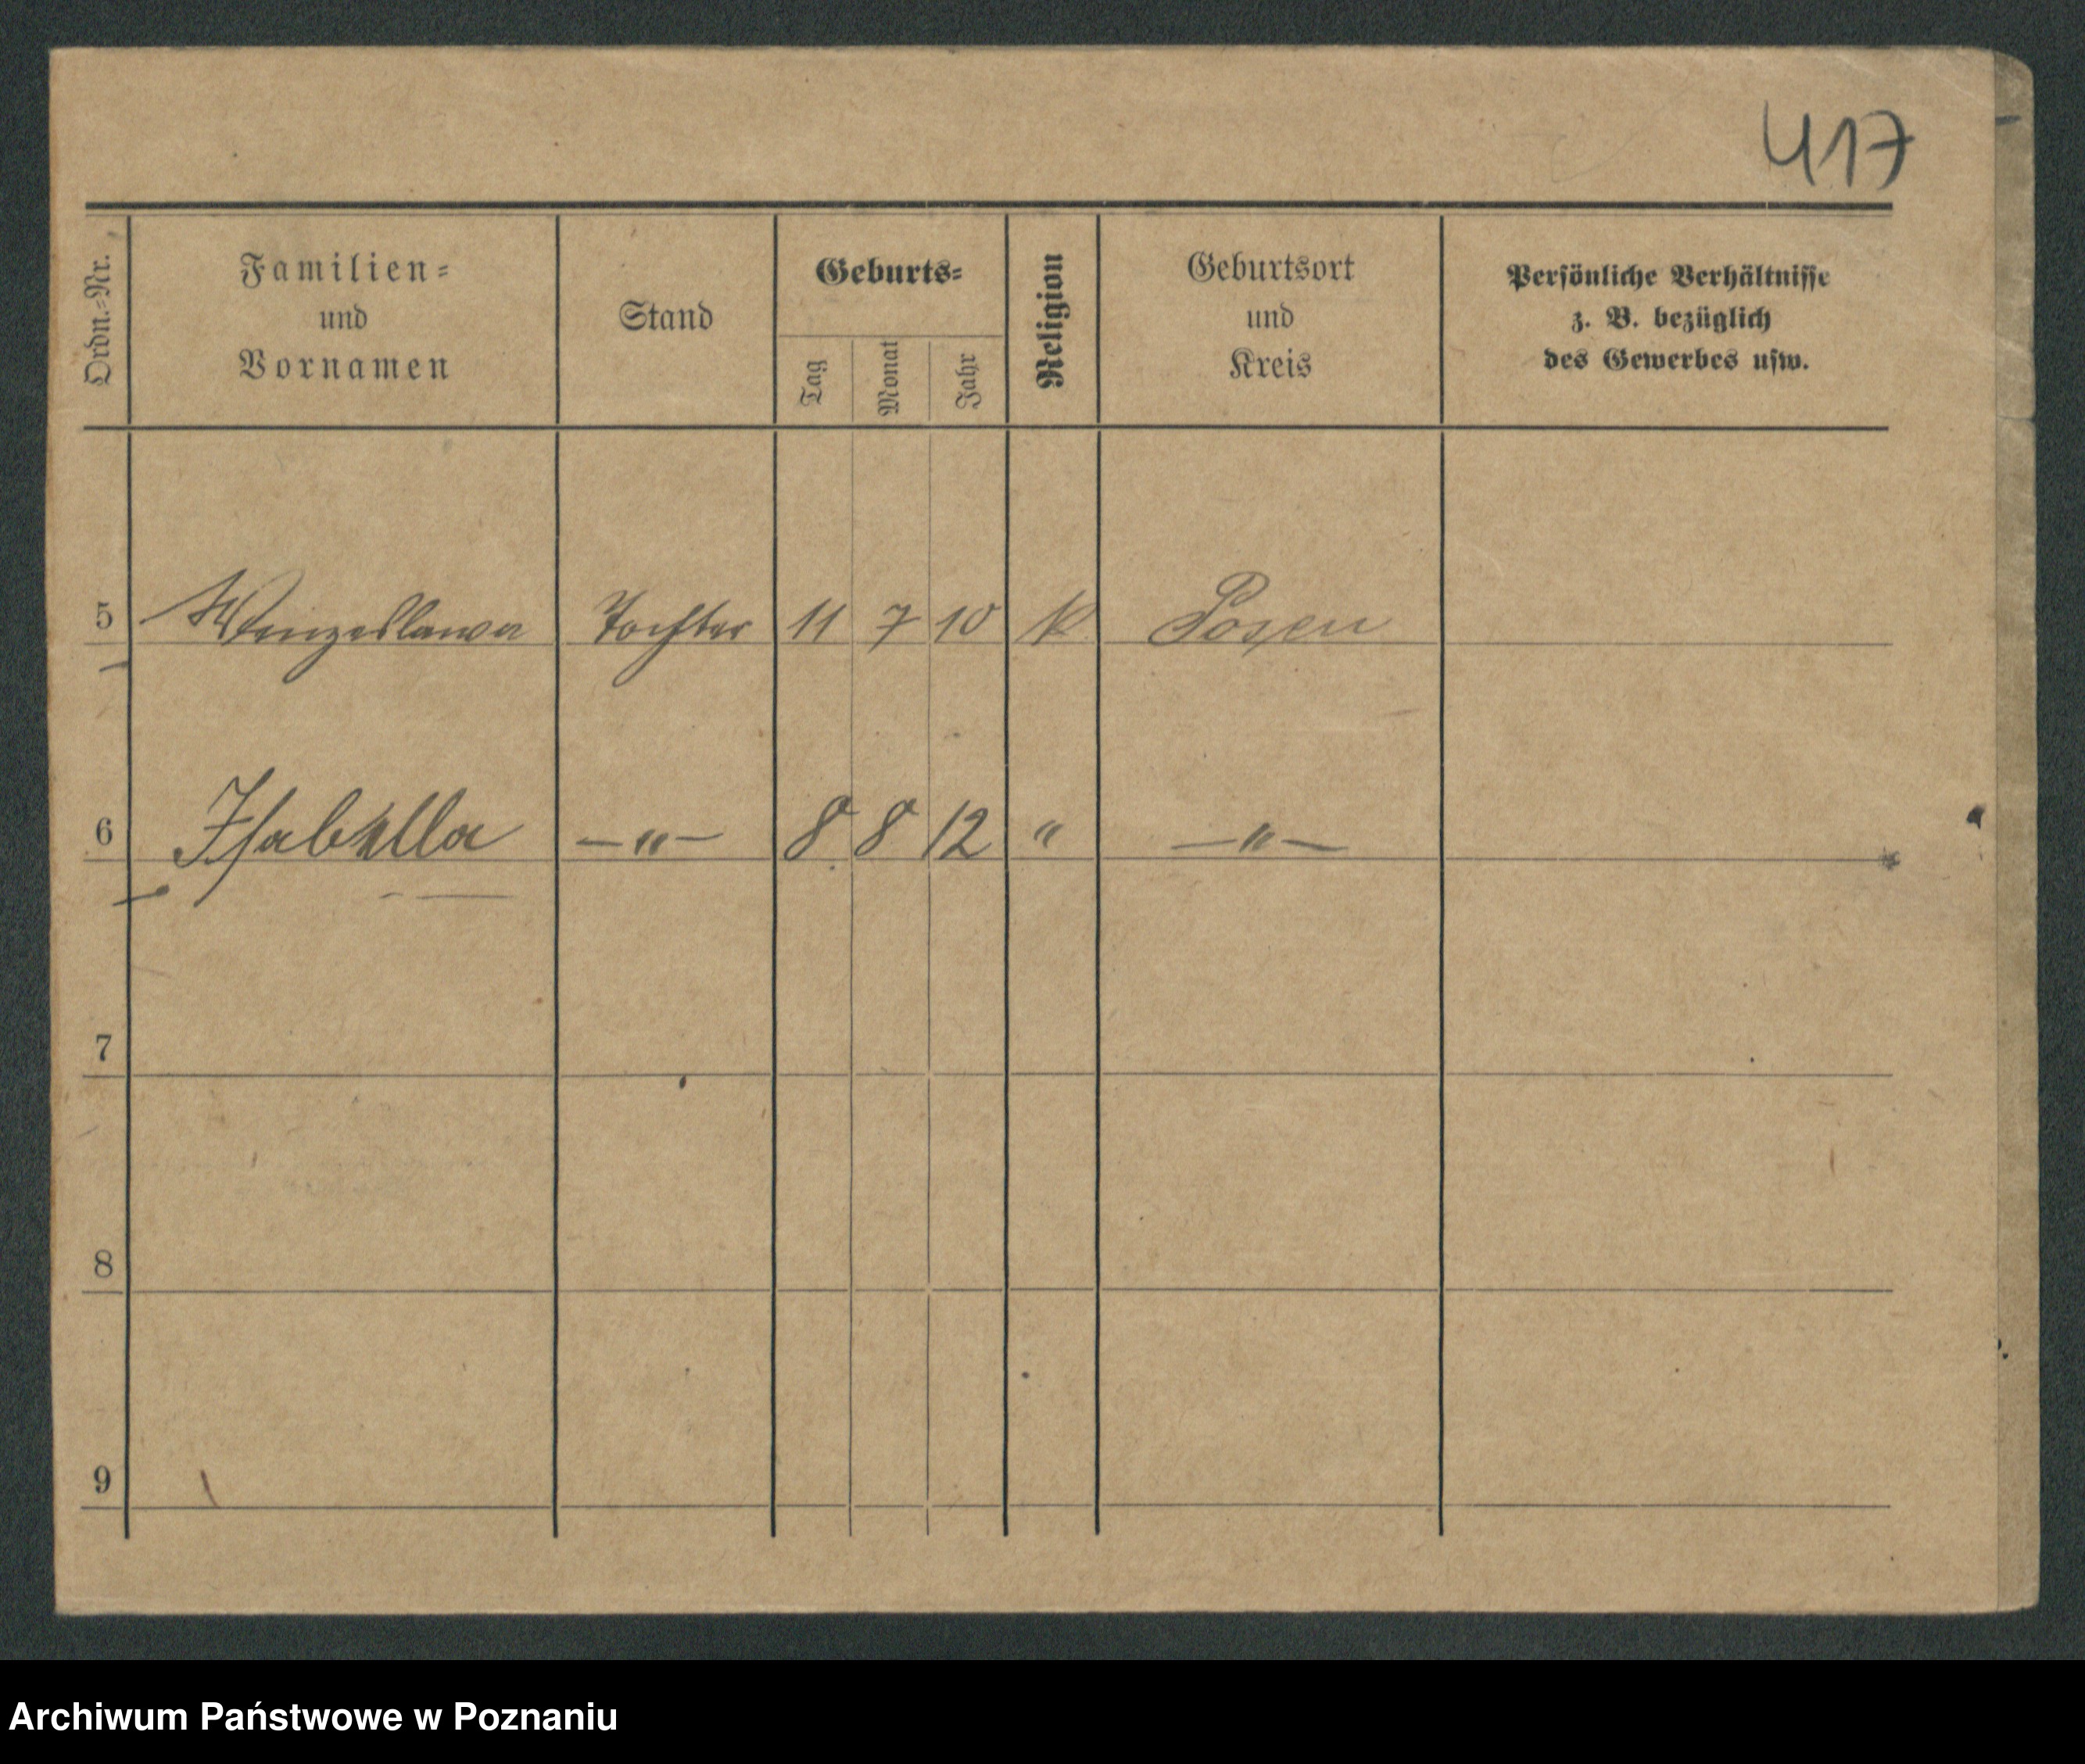 417
Ordn.-Nr.
Familien-
und
Vornamen
Stand
Geburts-
Tag
Monat
Jahr
Religion
Geburtsort
und
Kreis
Persönliche Verhältnisse
z. B. bezüglich
des Gewerbes usw.
5 Wenzeslawa Tochter 11 7 10 k Posen
6 Isabella —"— 8 8 12 " —"—
7
8
9
Archiwum Państwowe w Poznaniu